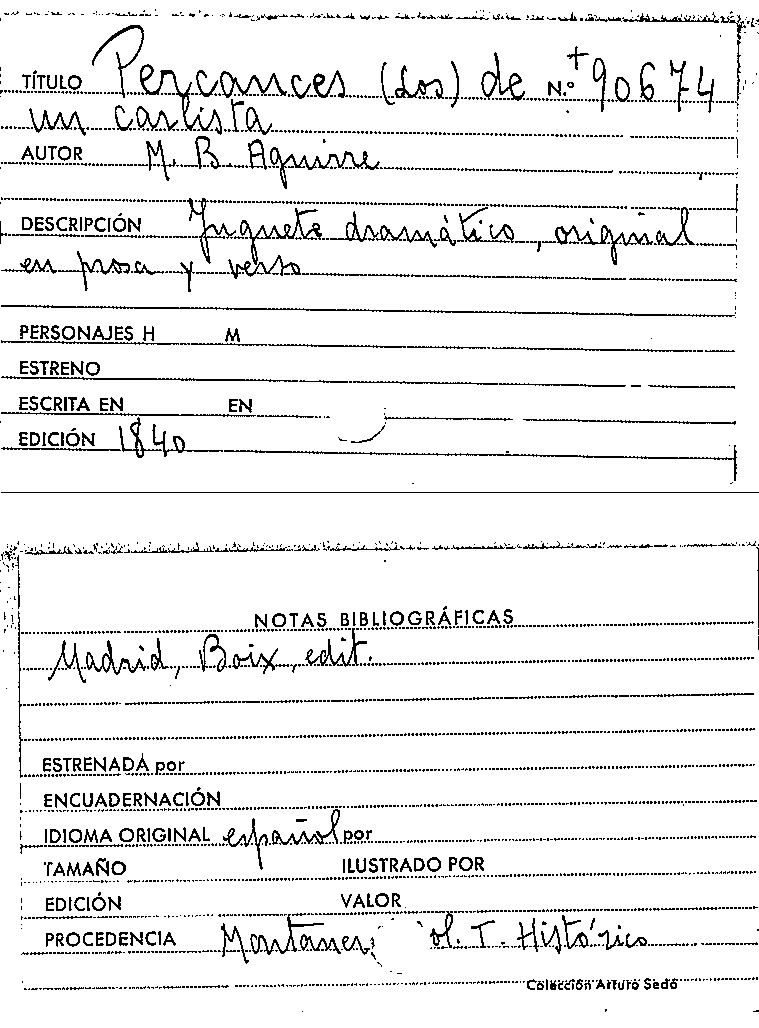 TÍTULO Percances (Los) de N.º +90674
un carlista
AUTOR M. B. Aguirre
DESCRIPCIÓN Juguete dramático, original
en prosa y verso
PERSONAJES H M
ESTRENO
ESCRITA EN EN
EDICIÓN 1840
NOTAS BIBLIOGRÁFICAS
Madrid, Boix, edit.
ESTRENADA por
ENCUADERNACIÓN
IDIOMA ORIGINAL español por
TAMAÑO ILUSTRADO POR
EDICIÓN VALOR
PROCEDENCIA Montaner T. Histórico
Colección Arturo Sedó